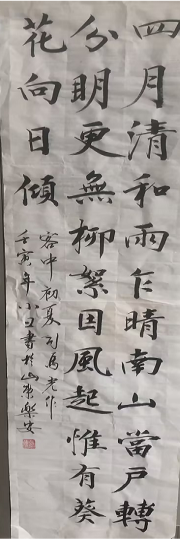 四月清和雨乍晴南山當戶轉
分明更無柳絮因風起惟有葵
花向日傾
客中初夏司馬光作
壬寅年書於山東樂安